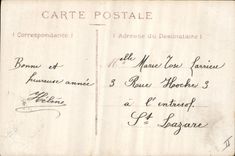 CARTE POSTALE
( Correspondance )
( Adresse du Destinataire )
Bonne et
heureuse année
Hélène
Melle Marie Jose
3 Rue Hoche 3
à l'entresol
St Lazare